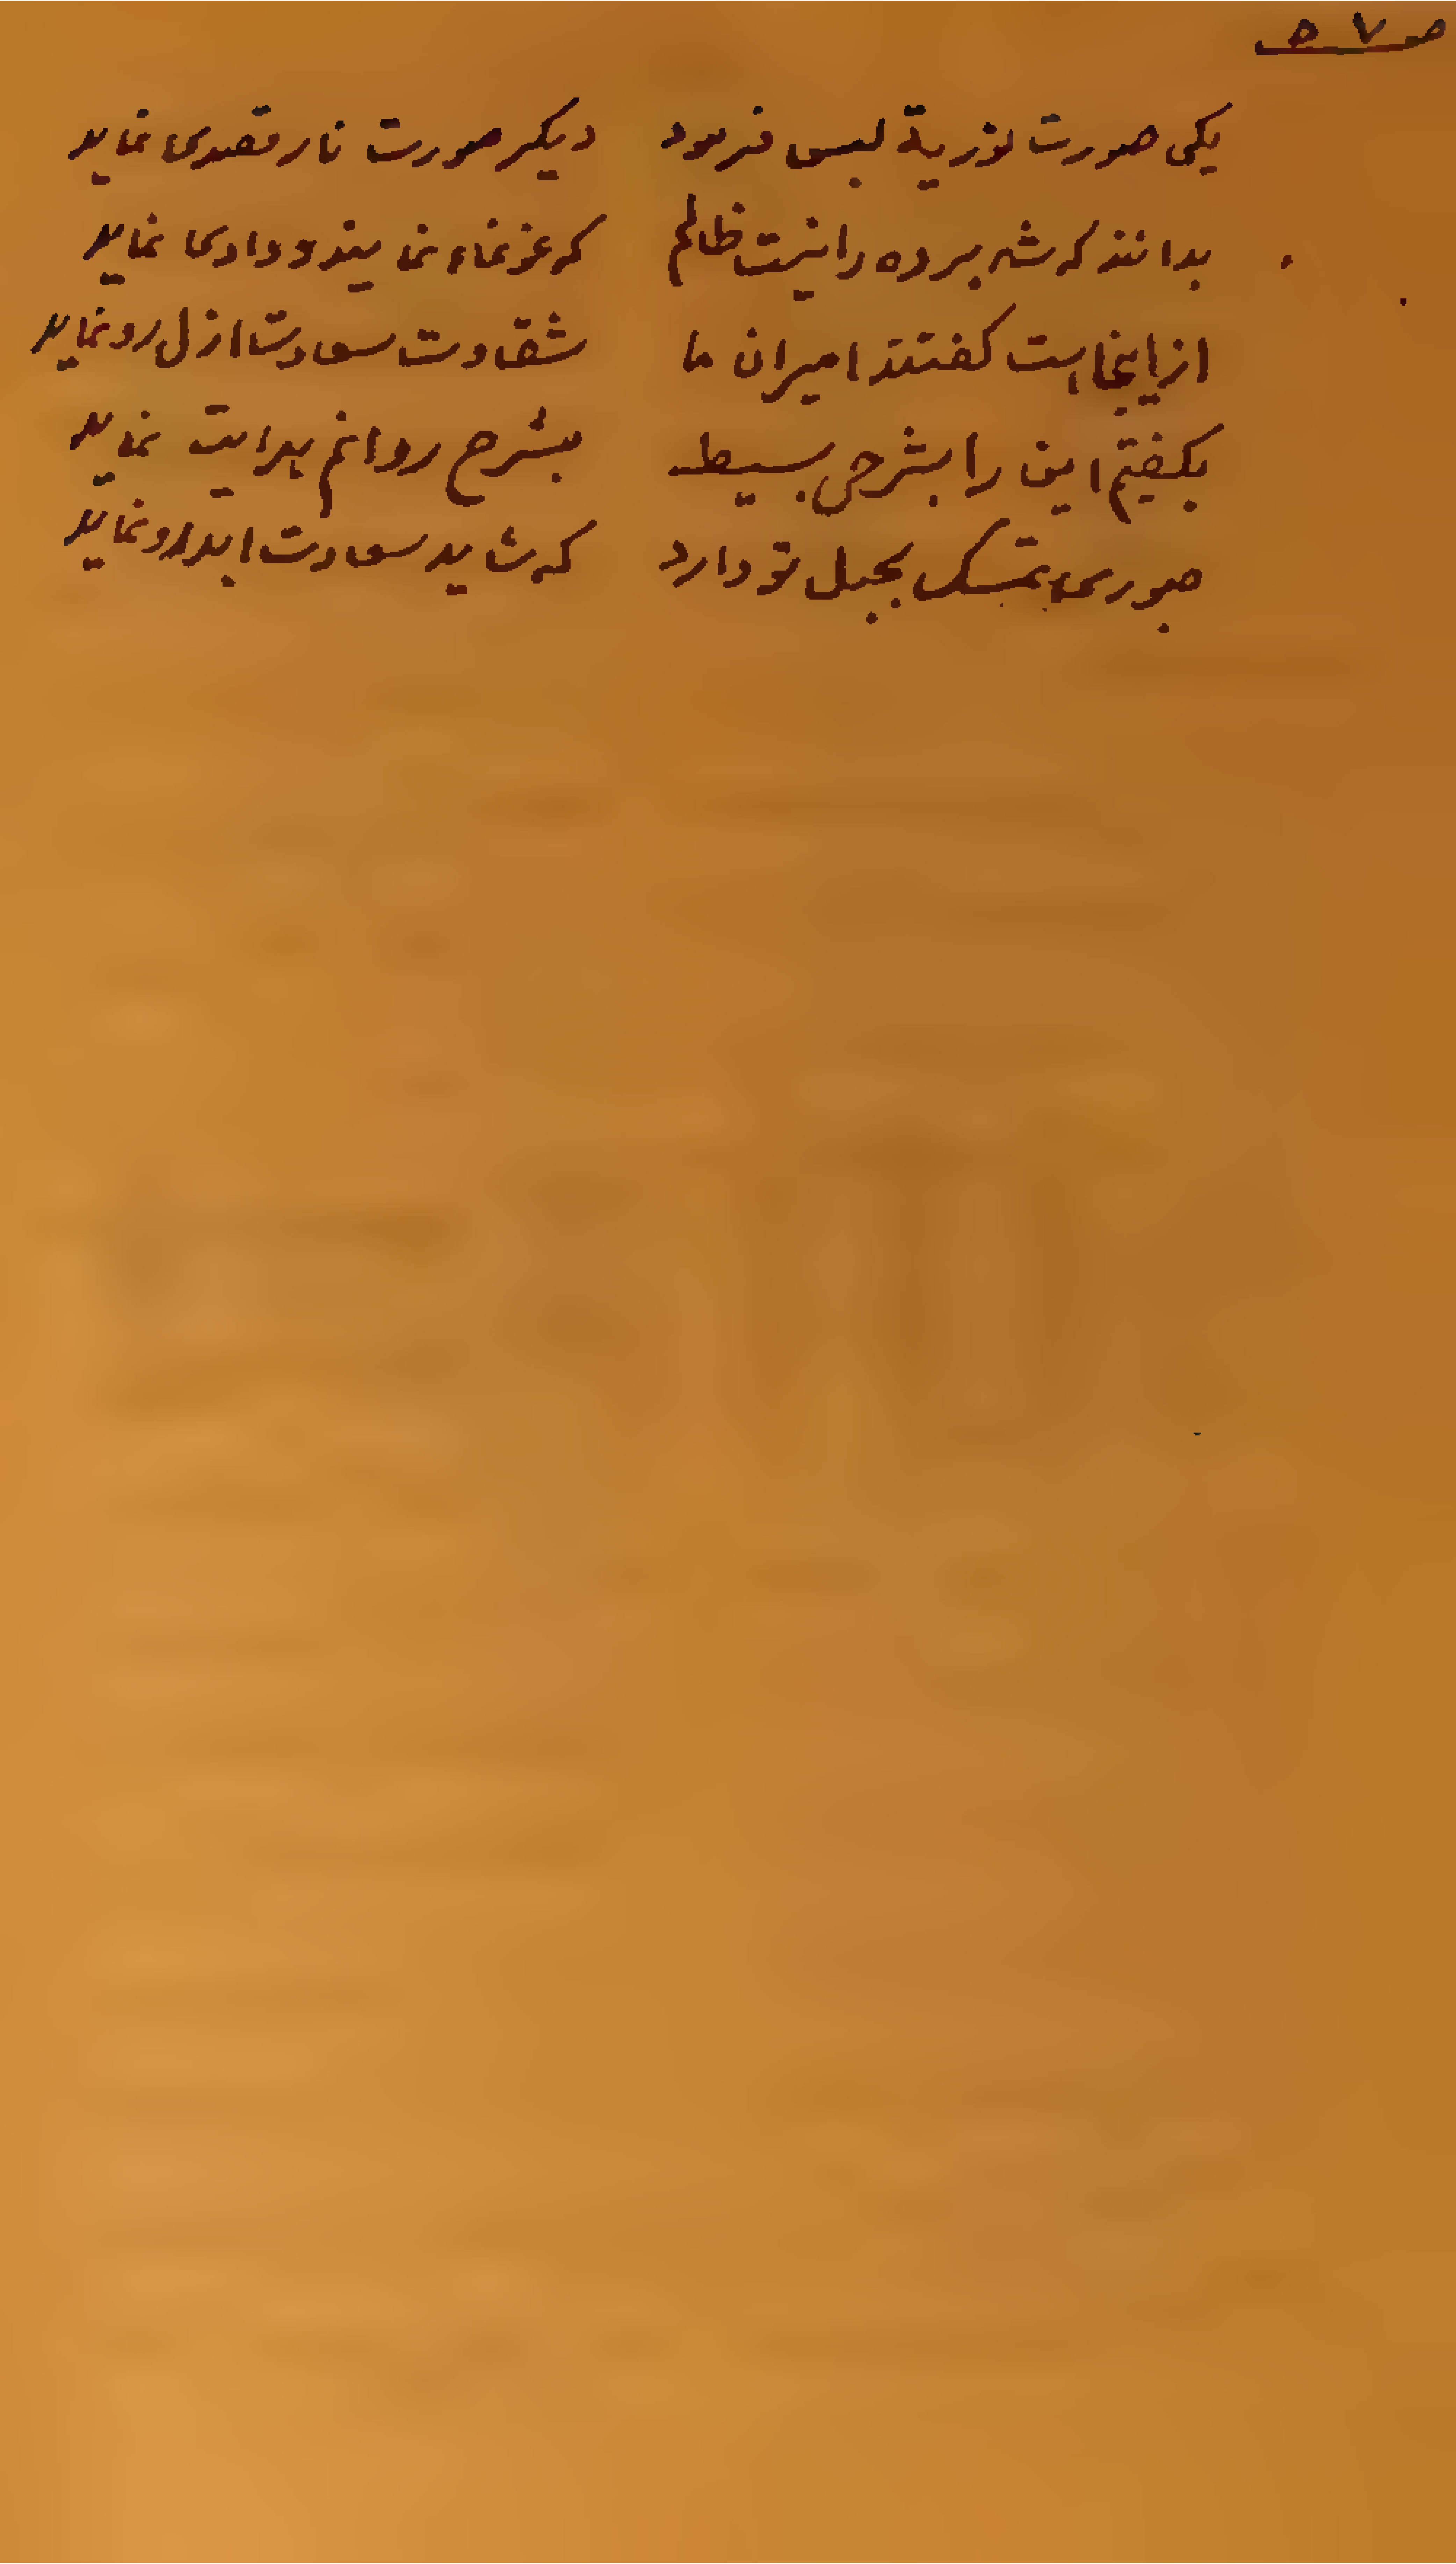 ص ٧ ص
یکی صورت نوریهٔ لبس فرمود دیکر صورت نار قصدی نماید
بدانند که شه برده را نیست ظالم که نماید
از اینجاست کفتند امیران ما شقاوت سعادت ازل رو نماید
بکفتم این را بشرحی بسیط بشرح روانم هدایت نماید
صبوری تمسک بحبل تو دارد که شاید سعادت ابد رو نماید